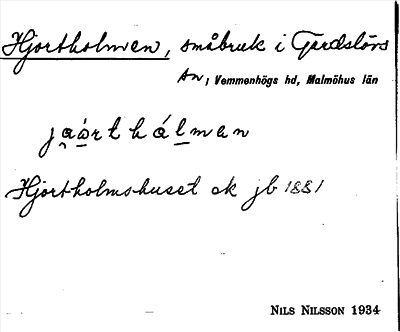 Hjortholmen, småbruk i Gärdslövs
sn, Vemmenhögs hd, Malmöhus län
jaört hálman
Hjortholmshuset ek jb 1881
NILS NILSSON 1934